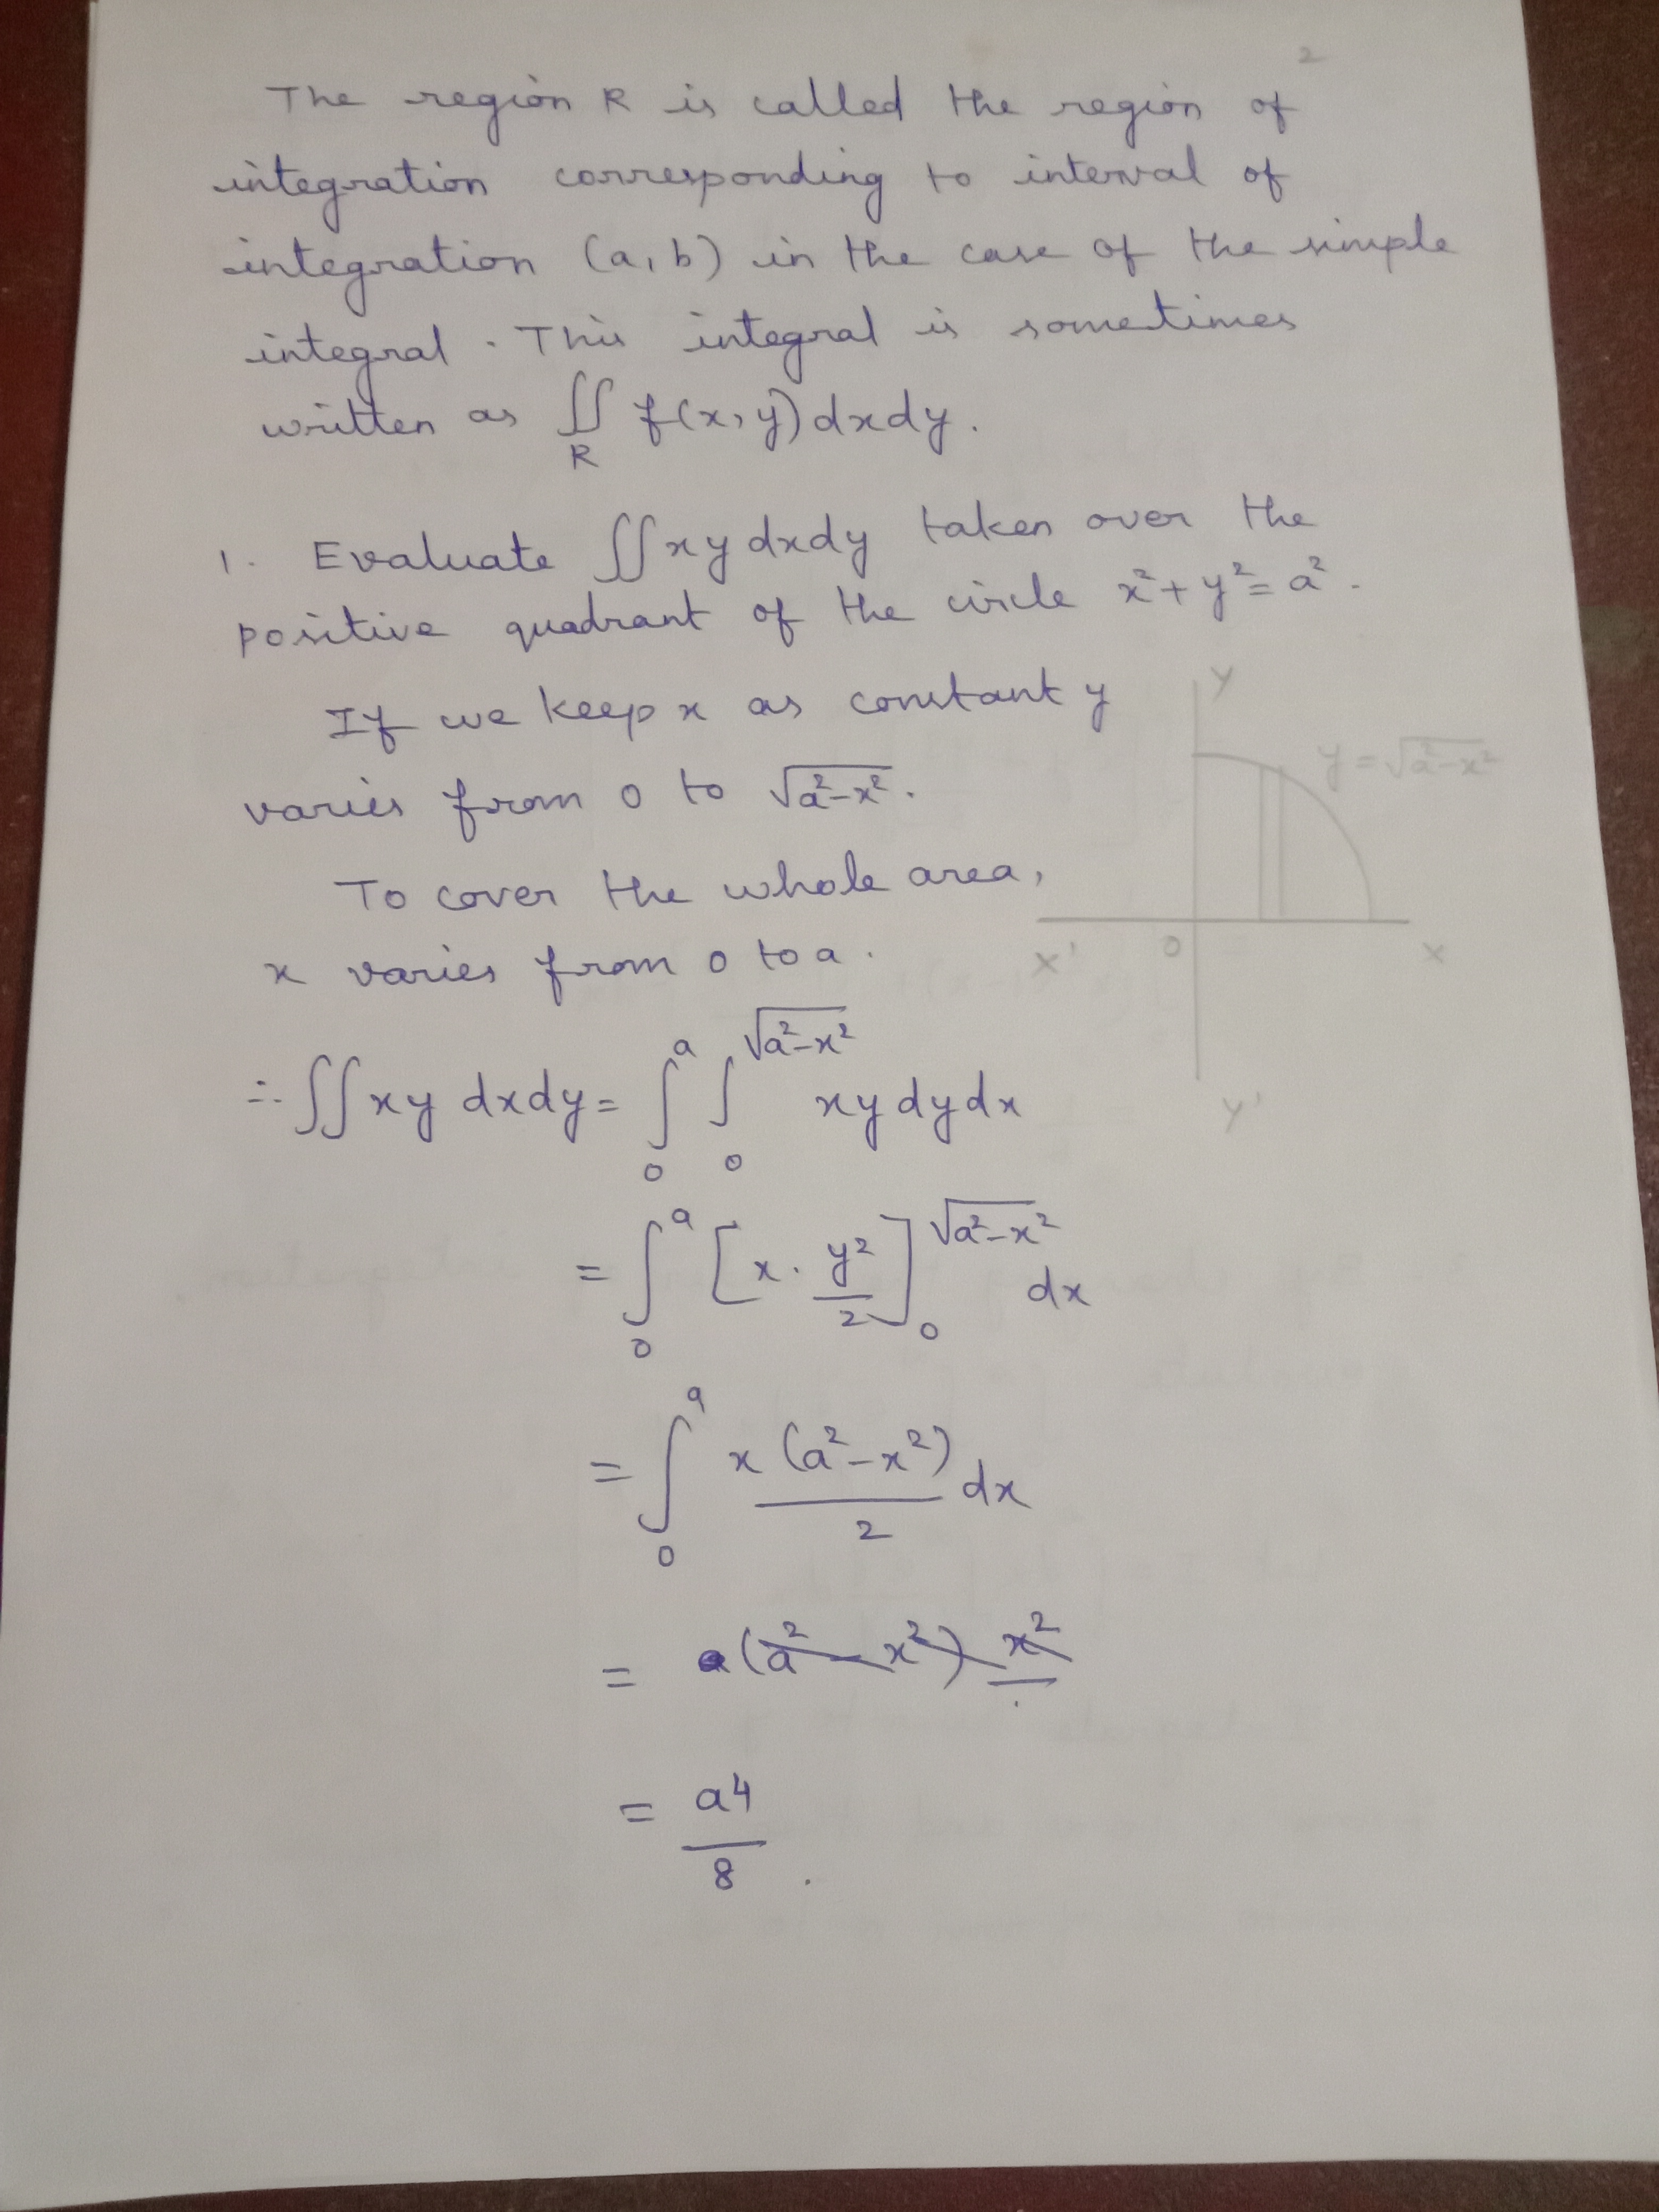 2
The region R is called the region of
integration corresponding to interval of
integration (a, b) in the case of the simple
integral. This integral is sometimes
written as ∬_R f(x, y) dx dy.
1. Evaluate ∬ xy dx dy taken over the
positive quadrant of the circle x² + y² = a².
If we keep x as constant y
varies from 0 to √(a²-x²).
To cover the whole area,
x varies from 0 to a.
Y
y = √(a²-x²)
X' O X
Y'
∴ ∬ xy dx dy = ∫₀^a ∫₀^√(a²-x²) xy dy dx
= ∫₀^a [x · y²/2]₀^√(a²-x²) dx
= ∫₀^a x (a²-x²)/2 dx
= (a² - x²) x²
= a4/8.